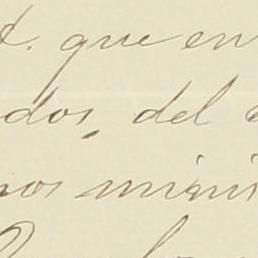 d. que en
dos, del
nos minis